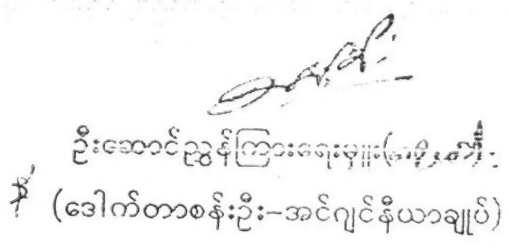 ဦးဆောင်ညွှန်ကြားရေးမှူး
(ဒေါက်တာစန်းဦး-အင်ဂျင်နီယာချုပ်)